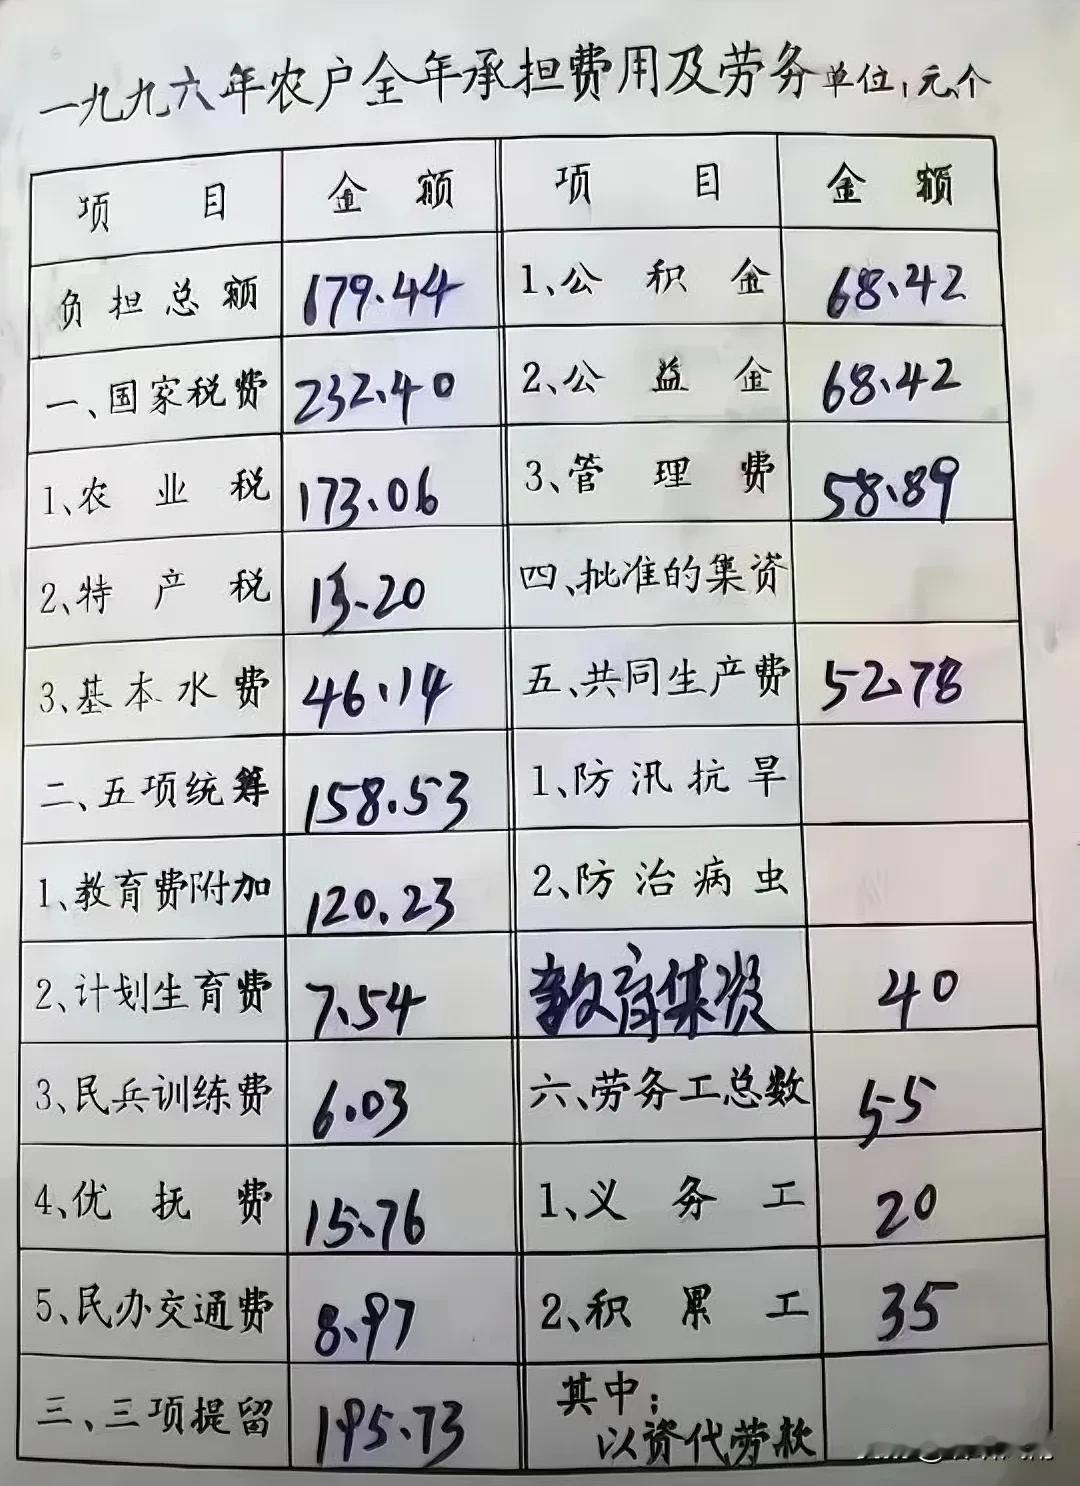 一九九六年农户全年承担费用及劳务 单位:元、个
项目 金额 项目 金额
负担总额 179.44 1、公积金 68.42
一、国家税费 232.40 2、公益金 68.42
1、农业税 173.06 3、管理费 58.89
2、特产税 13.20 四、批准的集资
3、基本水费 46.14 五、共同生产费 52.78
二、五项统筹 158.53 1、防汛抗旱
1、教育费附加 120.23 2、防治病虫
2、计划生育费 7.54 教育集资 40
3、民兵训练费 6.03 六、劳务工总数 55
4、优抚费 15.76 1、义务工 20
5、民办交通费 8.97 2、积累工 35
三、三项提留 195.73 其中:
以资代劳款